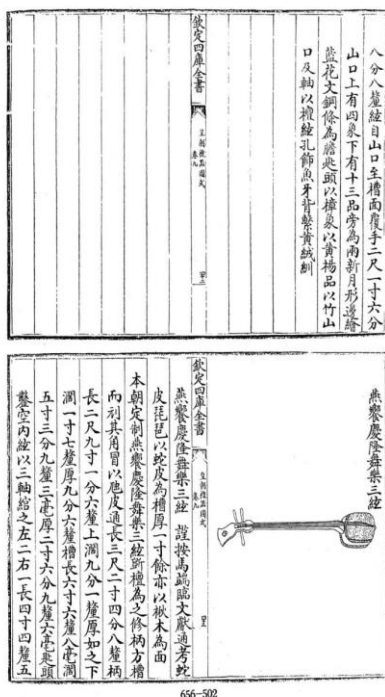 八分八釐絃自山口至槽面覆手二尺一寸六分
山口上有四象下有十三品旁為兩新月形邊繪
藍花文鋼條為膽匙頭以樟象以黃楊品以竹山
口及軸以檀絃孔飾魚牙背槊黃絨紃
欽定四庫全書
皇朝禮器圖式
卷九
燕饗慶隆舞樂三絃
欽定四庫全書
皇朝禮器圖式
卷九
燕饗慶隆舞樂三絃 謹按馬端臨文獻通考蛇
皮琵琶以蛇皮為槽厚一寸餘亦以楸木為面
本朝定制燕饗慶隆舞樂三絃斲檀為之修柄方槽
而刓其角冒以虺皮通長三尺二寸四分八釐柄
長二尺九寸一分六釐上濶九分一釐厚如之下
濶一寸七釐厚九分六釐槽長六寸六釐八毫濶
五寸三分九釐三毫厚二寸六分九釐六毫匙頭
鑿空內絃以三軸綰之左二右一長四寸四釐五
656-502